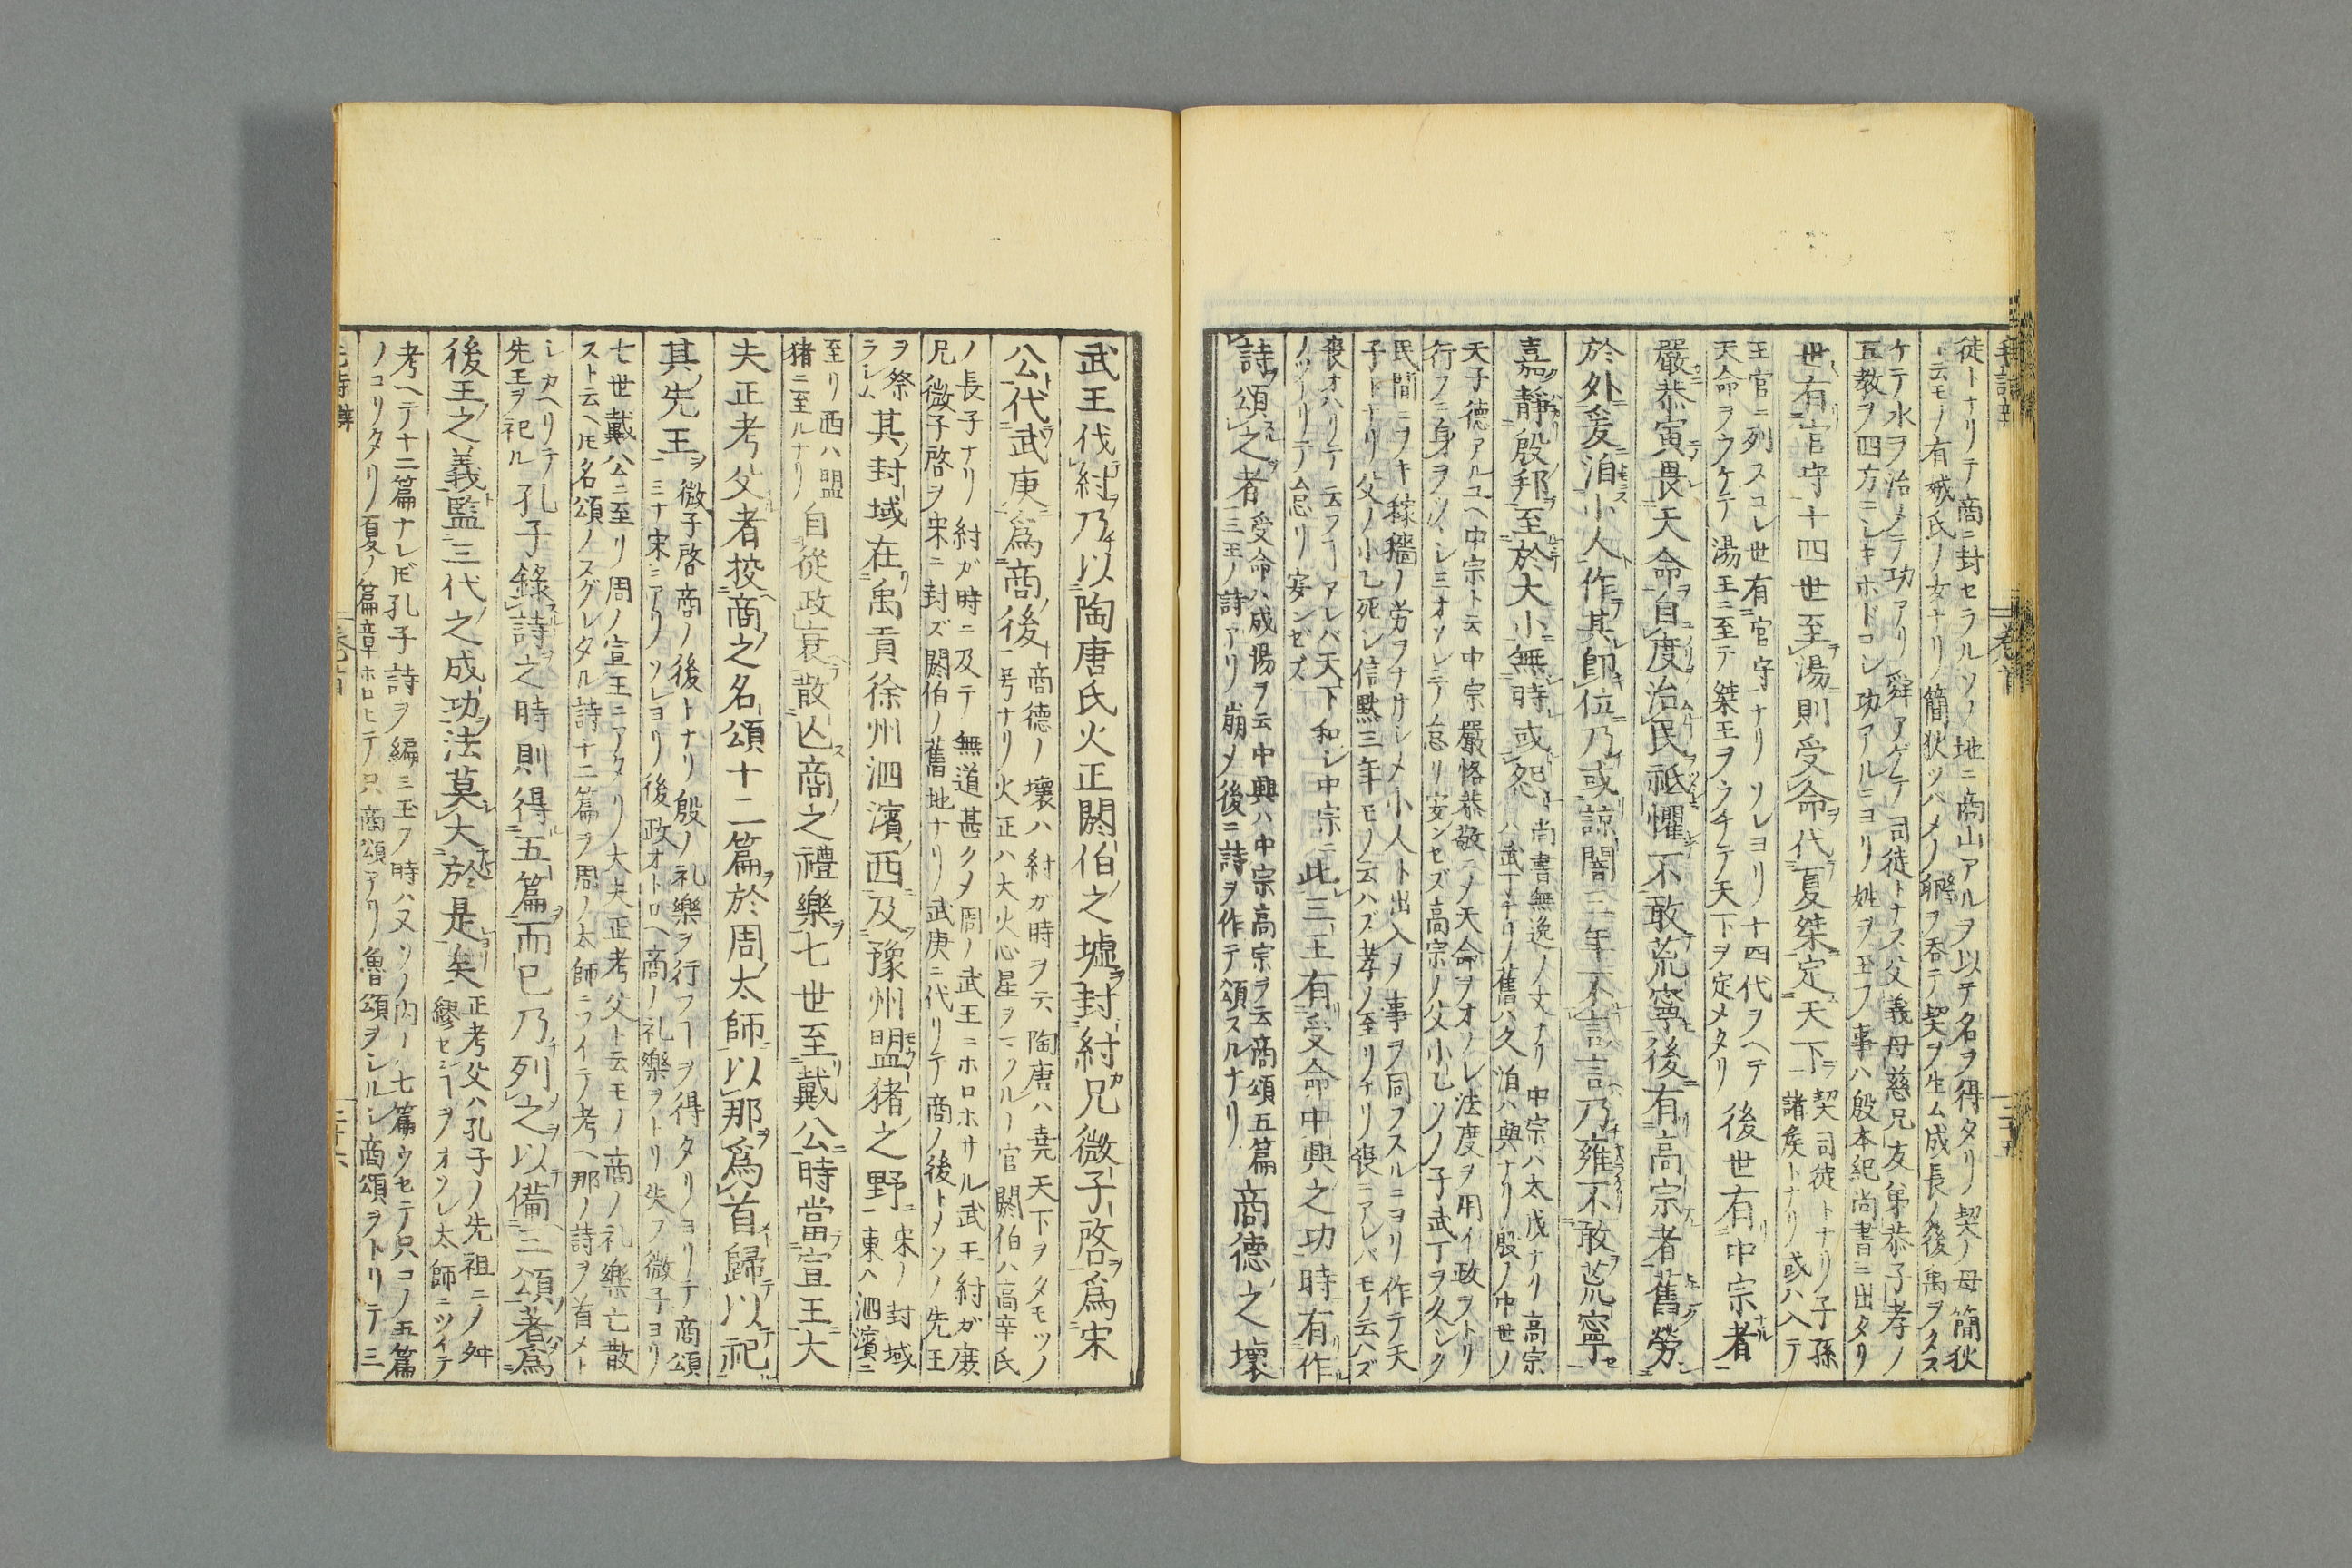 徒トナリテ商ニ封セラルソノ地ニ商山アルヲ以テ名ヲ得タリ契ノ母簡狄
ト云モノ有娀氏ノ女ナリ簡狄ツバメノ卵ヲ呑テ契ヲ生ム成長ノ後禹ヲタス
ケテ水ヲ治メテ功アリ舜アゲテ司徒トナス父義母慈兄友弟恭子孝ノ
五教ヲ四方ニシキホドコシ功アルニヨリ姓ヲ玉フ事ハ殷本紀尚書ニ出タリ
世有官守十四世至湯則受命代夏桀定天下
契司徒トナリ子孫
諸矦トナリ或ハ入テ
王官ニ列スコレ世有官守ナリソレヨリ十四代ヲヘテ
天命ヲウケテ湯王ニ至テ桀王ヲウチテ天下ヲ定メタリ
後世有中宗者
嚴恭寅畏天命自度治民祗懼不敢荒寧後有高宗者舊勞
於外爰洎小人作其卽位乃或諒闇三年不言言乃雍不敢荒寧
嘉靜殷邦至於大小無時或怨
尚書無逸ノ文ナリ中宗ハ太戊ナリ高宗
ハ武丁ナリ舊ハ久洎ハ與ナリ殷ノ中世ノ
天子德アルユヘ中宗ト云中宗嚴恪恭敬ニメ天命ヲオソレ法度ヲ用イ政ヲトリ
行フニ身ヲツヽシミオソレテ怠リ安ンセズ高宗ノ父小乙ソノ子武丁ヲ久シク
民間ニヲキ稼穡ノ労ヲナサシメ小人ト出入メ事ヲ同フスルニヨリ作テ天
子トナリ父ノ小乙死シ信默三年モノ云ハズ孝ノ至リナリ喪ニアレバモノ云ハズ
喪オハリテ云フヿアレバ天下和シ中宗ニ
ノツトリテ怠リ安ンゼズ
此三王有受命中興之功時有作
詩頌之者
受命ハ成湯ヲ云中興ハ中宗高宗ヲ云商頌五篇
三王ノ詩アリ崩メ後ニ詩ヲ作テ頌スルナリ
商德之壞
武王伐紂乃以陶唐氏火正閼伯之墟封紂兄微子啓爲宋
公代武庚爲商後
商德ノ壞ハ紂ガ時ヲ云陶唐ハ堯天下ヲタモツノ
号ナリ火正ハ大火心星ヲマツルノ官閼伯ハ高辛氏
ノ長子ナリ紂ガ時ニ及テ無道甚クメ周ノ武王ニホロホサル武王紂ガ庻
兄微子啓ヲ宋ニ封ズ閼伯ノ舊地ナリ武庚ニ代リテ商ノ後トメソノ先王
ヲ祭
ラシム
其封域在禹貢徐州泗濱西及豫州盟猪之野
宋ノ封域
東ハ泗濱ニ
至リ西ハ盟
猪ニ至ルナリ
自從政衰散亾商之禮樂七世至戴公時當宣王大
夫正考父者挍商之名頌十二篇於周太師以那爲首歸以祀
其先王
微子啓商ノ後トナリ殷ノ礼樂ヲ行フヿヲ得タリヨリテ商頌
ミナ宋ニアリソレヨリ後政オトロヘ商ノ礼樂ヲトリ失フ微子ヨリ
七世戴公ニ至リ周ノ宣王ニアタリ大夫正考父ト云モノ商ノ礼樂亡散
スト云ヘ𪜈名頌ノスグレタル詩十二篇ヲ周ノ太師ニツイテ考ヘ那ノ詩ヲ首メト
シカヘリテ
先王ヲ祀ル
孔子錄詩之時則得五篇而已乃列之以備三頌著爲
後王之義監三代之成功法莫大於是矣
正考父ハ孔子ノ先祖ニノ舛
繆セシヿヲオソレ太師ニツイテ
考ヘテ十二篇ナレ𪜈孔子詩ヲ編ミ玉フ時ハ又ソノ内ノ七篇ウセテ只コノ五篇
ノコリタリ夏ノ篇章ホロヒテ只商頌アリ魯頌ヲシルシ商頌ヲトリテ三